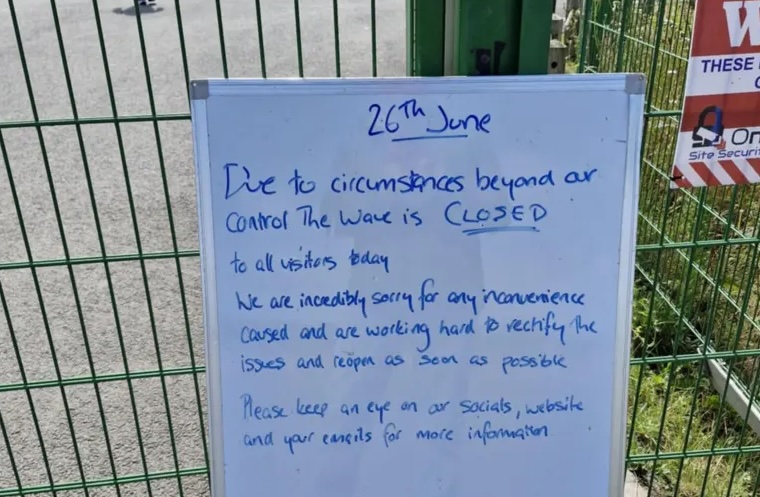 26TH June
Due to circumstances beyond our
control The Wave is CLOSED
to all visitors today
We are incredibly sorry for any inconvenience
caused and are working hard to rectify the
issues and reopen as soon as possible
Please keep an eye on our socials, website
and your emails for more information
W
THESE
On
Site Securi